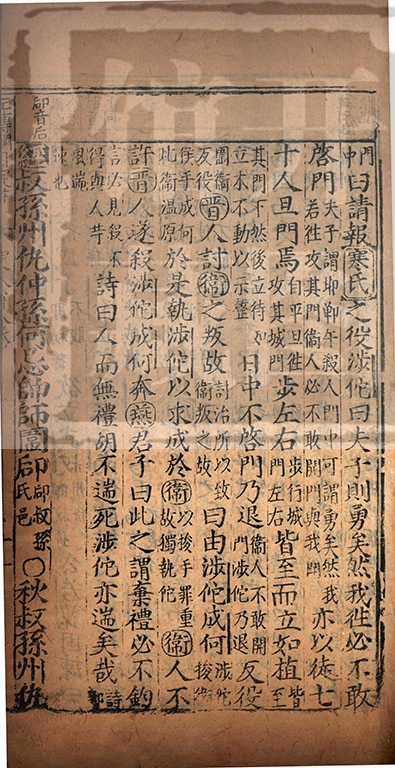 門中曰請報寒氏之役涉佗曰夫子則勇矣然我往必不敢
啓門夫子謂邯鄲午殺人門中可謂勇矣然我若往攻其門衛人必不敢開門與我鬥亦以徒七
十人旦門焉自平旦往攻其城門步左右步行城門左右皆至而立如植皆至
其門不然後立待如立木不動以示整日中不啓門乃退衛人不敢開門涉佗乃退反役
圍衛反役晉人討衛之叛故討治所以致衛叛之故曰由涉佗成何涉佗捘衛
侯手成何比衛溫原於是執涉佗以求成於衛以捘手罪重故獨執佗衛人不
許晉人遂殺涉佗成何奔燕君子曰此之謂棄禮必不鈞
言必見殺不得與人詩曰人而無禮胡不遄死涉佗亦遄矣哉詩
速也
郈音后
經叔孫州仇仲孫何忌帥師圍郈郈叔孫氏邑○秋叔孫州仇